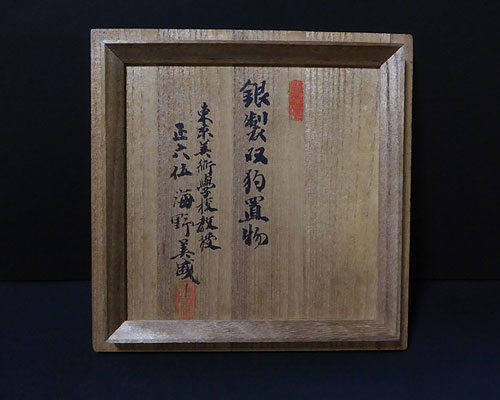 銀製双狗置物
東京美術學校教授
正六位 海野美盛